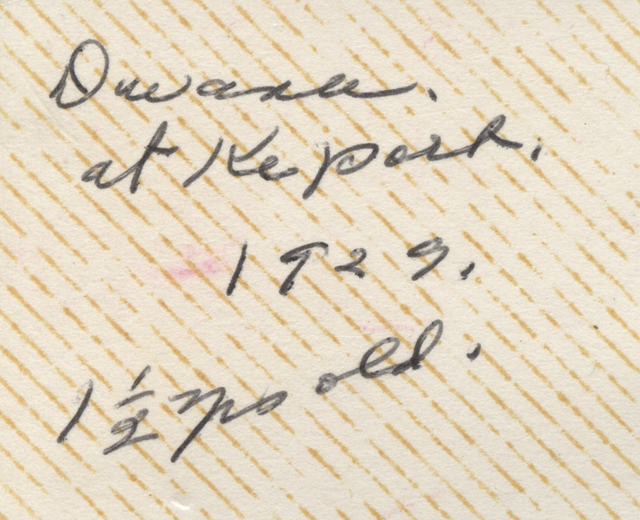 Duwane.
at Keport.
1929.
1 1/2 yrs old.